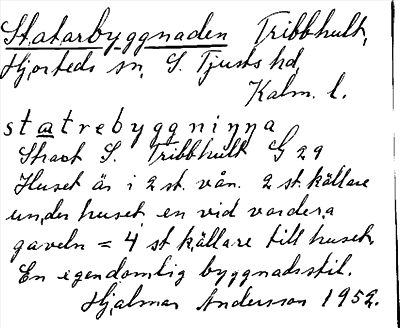 Statarbyggnaden Tribbhult,
Hjorteds sn, S. Tjusts hd,
Kalm. l.
statrebyggninna
Strax S. Tribbhult G 29
Huset är i 2 st. vån. 2 st. källare
under huset en vid vardera
gaveln = 4 st källare till huset,
En egendomlig byggnadsstil.
Hjalmar Andersson 1952.